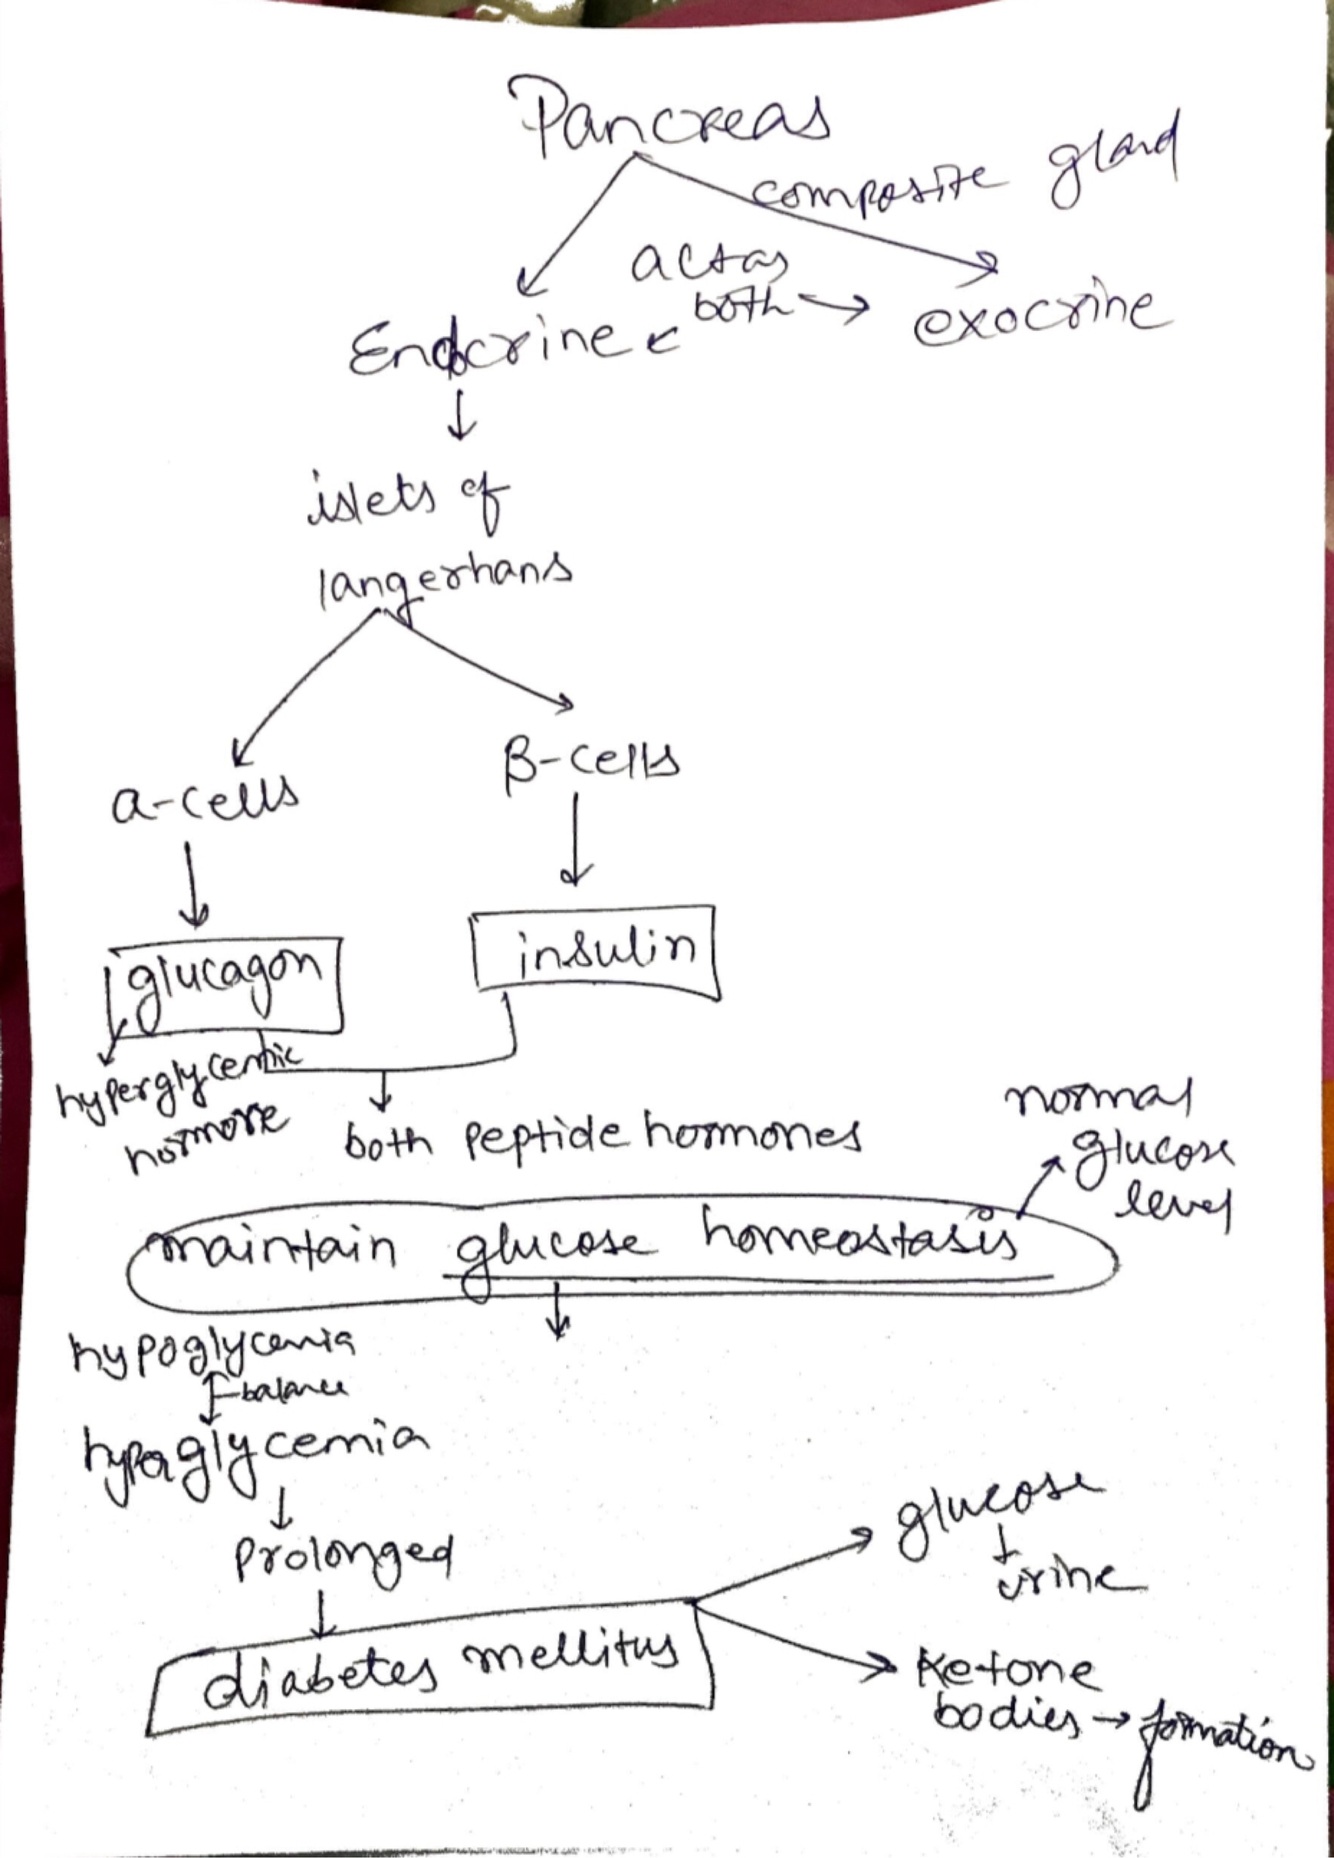 Pancreas
composite gland
acts as
both
Endocrine
exocrine
islets of
langerhans
α-cells
β-cells
glucagon
insulin
hyperglycemic
hormone
both peptide hormones
normal
glucose
level
maintain glucose homeostasis
hypoglycemia
balance
hyperglycemia
Prolonged
diabetes mellitus
glucose
urine
Ketone
bodies → formation